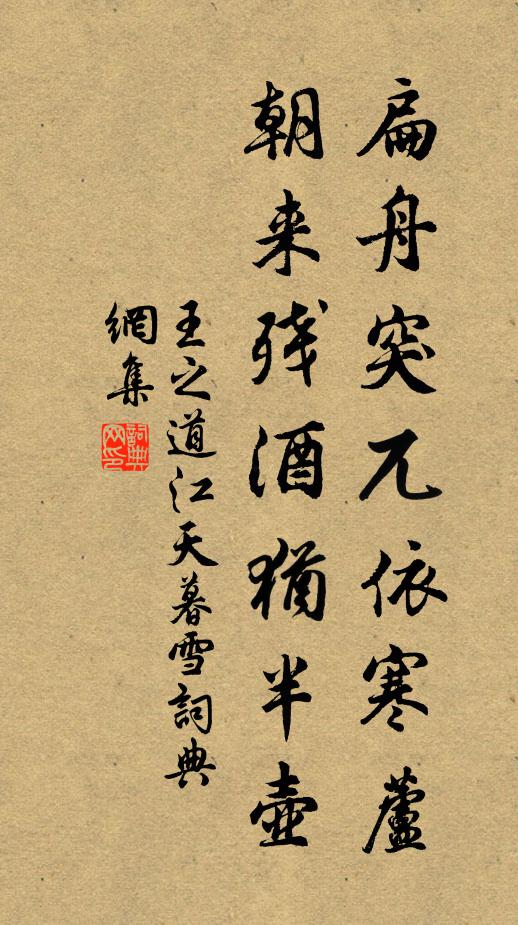 扁舟突兀依寒蘆
朝来残酒猶半壺
王之道江天暮雪詞典
網集
詞典網印